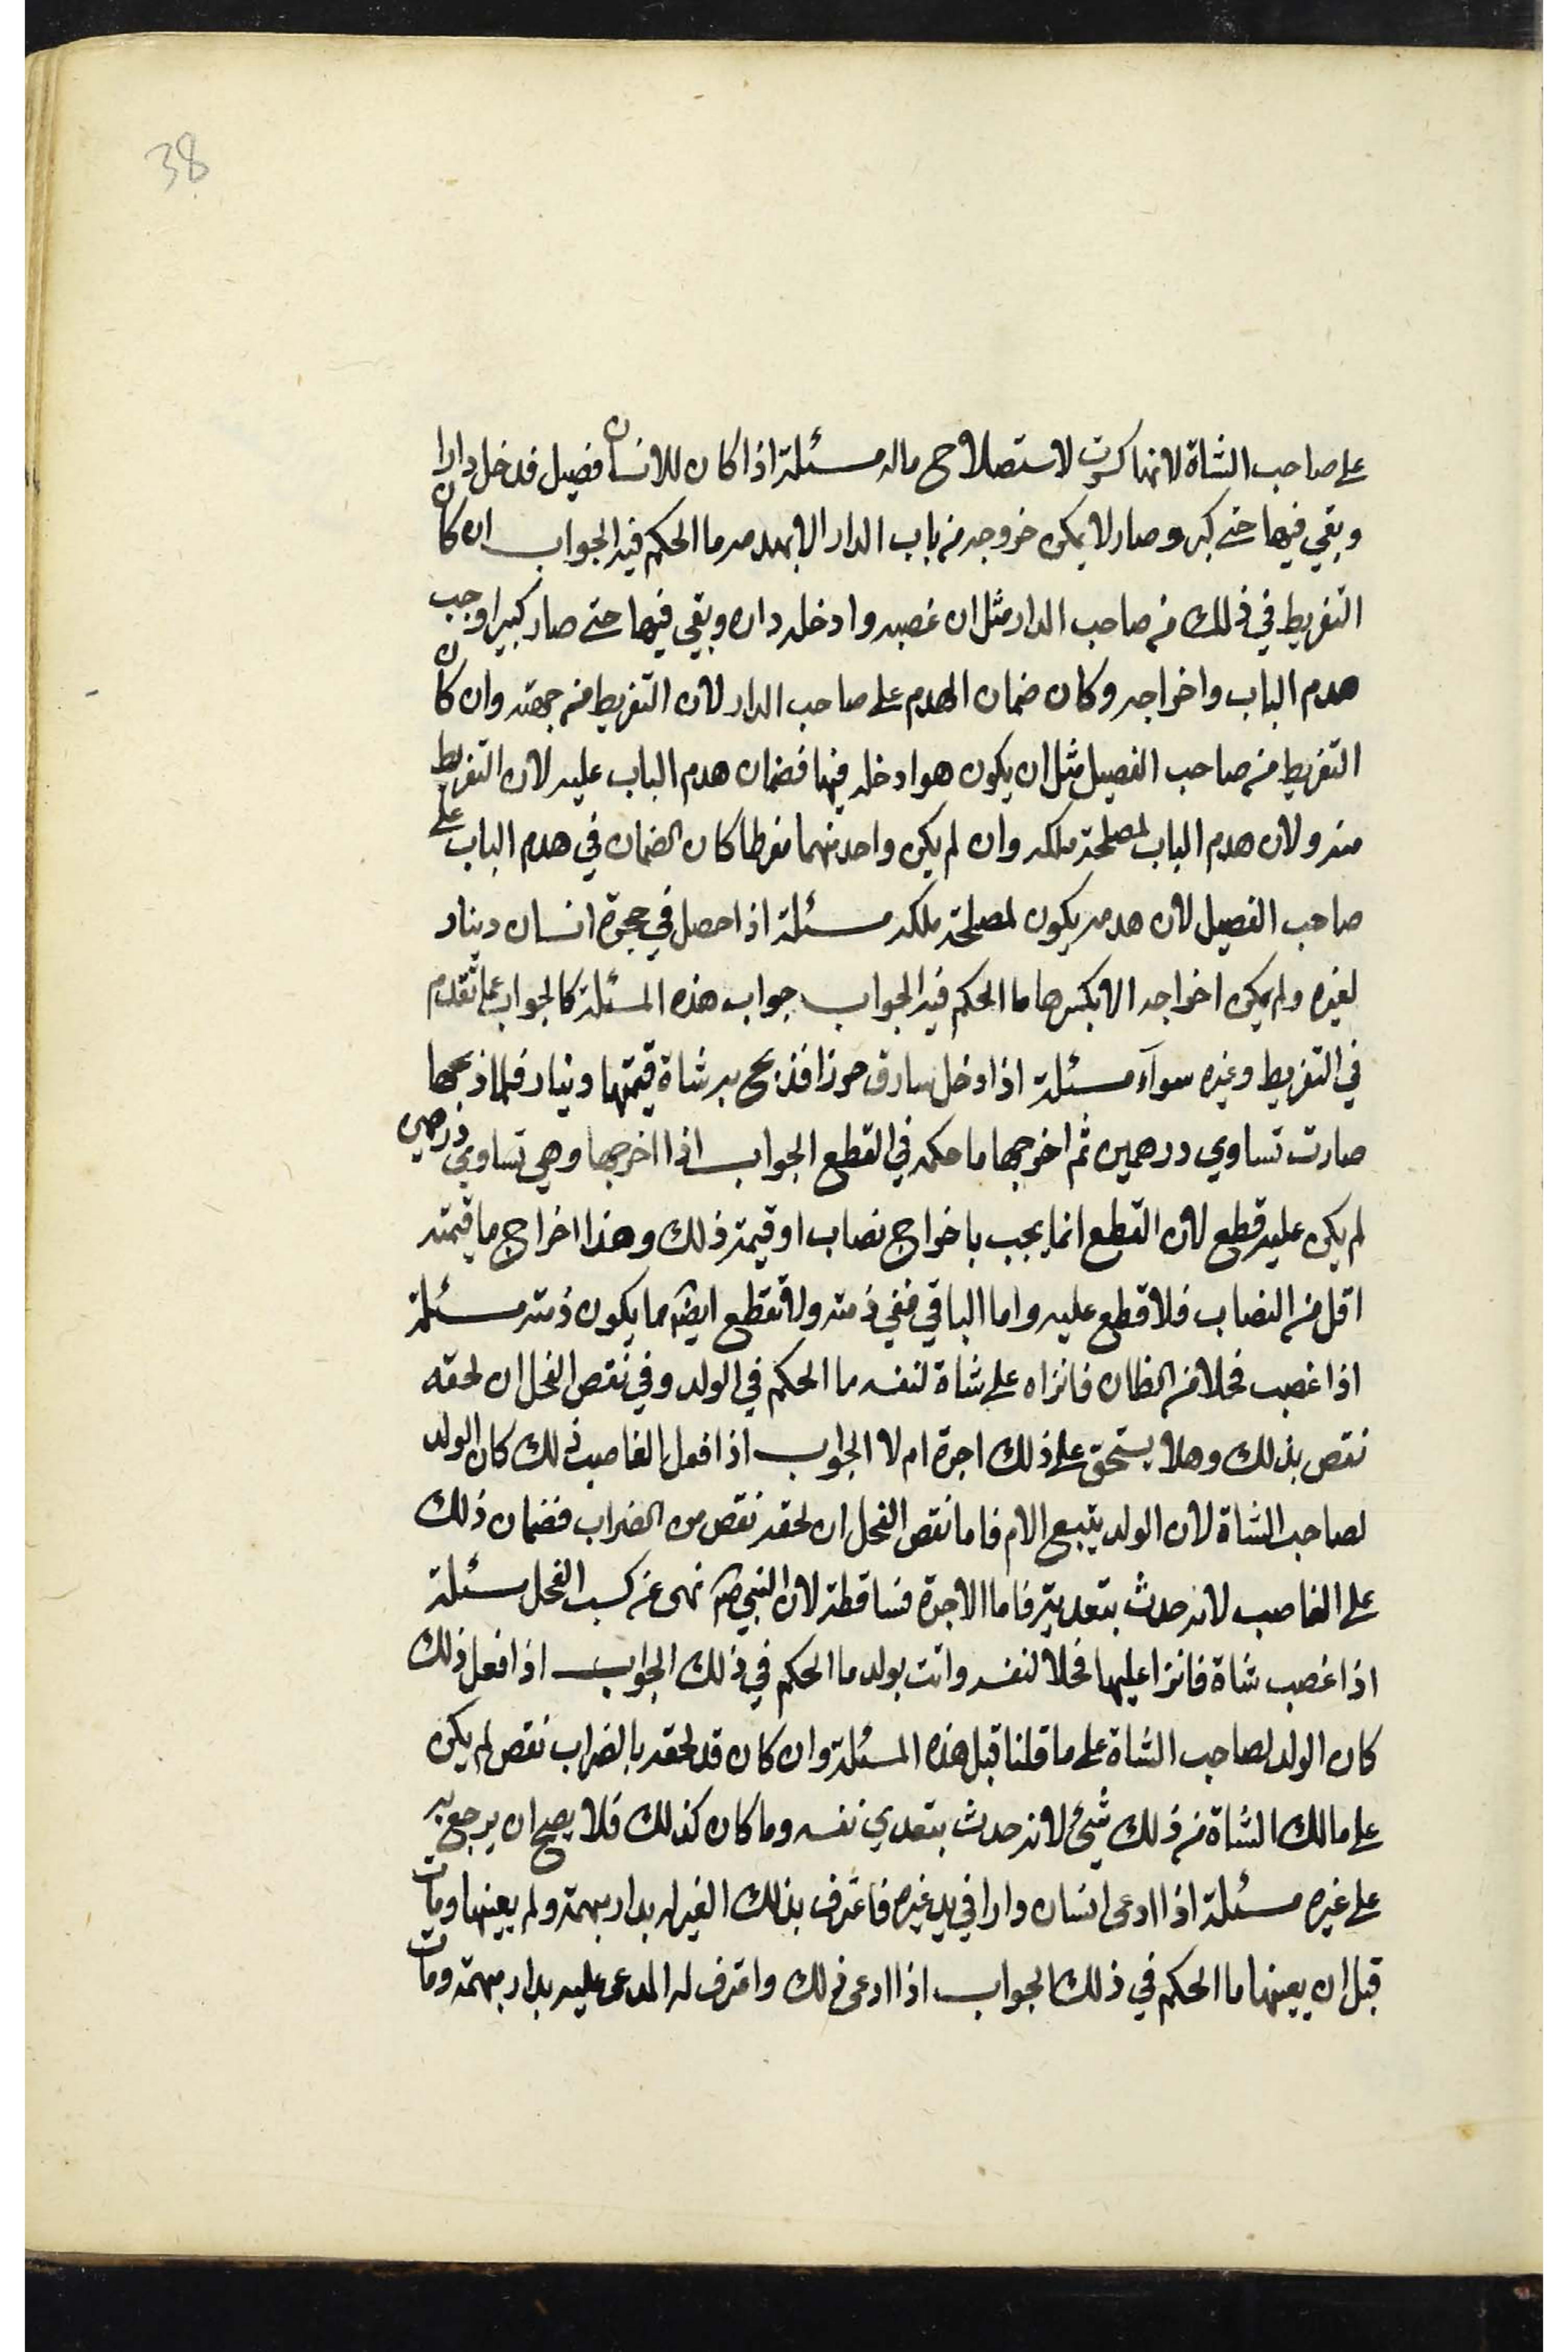 38
على صاحب الشاة لانها كسرت لاستصلاح ماله مسئلة اذا كان للانسان فصيل فدخل دارا
وبقي فيها حتى كبر وصار لا يمكن خروجه من باب الدار الا بهدمه ما الحكم فيه الجواب ان كان
التفريط في ذلك من صاحب الدار مثل ان غصبه وادخله داره وبقي فيها حتى صار كبيرا وجب
هدم الباب واخراجه وكان ضمان الهدم على صاحب الدار لان التفريط من جهته وان كان
التفريط من صاحب الفصيل مثل ان يكون هو ادخله فيها فضمان هدم الباب عليه لان التفريط
منه ولان هدم الباب لمصلحة ملكه وان لم يكن واحد منهما مفرطا كان الضمان في هدم الباب على
صاحب الفصيل لان هدمه يكون لمصلحة ملكه مسئلة اذا حصل في محبرة انسان دينار
لغيره ولم يمكن اخراجه الا بكسرها ما الحكم فيه الجواب جواب هذه المسئلة كالجواب عما تقدم
في التفريط وغيره سوآء مسئلة اذا دخل سارق حرزا فذبح به شاة قيمتها دينار فلما ذبحها
صارت تساوي درهمين ثم اخرجها ما حكمه في القطع الجواب اذا اخرجها وهي تساوي درهمين
لم يكن عليه قطع لان القطع انما يجب باخراج نصاب او قيمة ذلك وهذا اخراج ما قيمته
اقل من النصاب فلا قطع عليه واما الباقي ففي ذمته ولا تقطع ايضا مما يكون ذمته مسئلة
اذا غصب فحلا من الضان فانزاه على شاة لنفسه ما الحكم في الولد وفي نقص الفحل ان لحقه
نقص بذلك وهلا يستحق على ذلك اجرة ام لا الجواب اذا فعل الغاصب ذلك كان الولد
لصاحب الشاة لان الولد يتبع الام فاما نقص الفحل ان لحقه نقص من الضراب فضمان ذلك
على الغاصب لانه حدث بتعديه فاما الاجرة فساقطة لان النبي ص نهى عن كسب الفحل مسئلة
اذا غصب شاة فانزا عليها فحلا لنفسه واتت بولد ما الحكم في ذلك الجواب اذا فعل ذلك
كان الولد لصاحب الشاة على ما قلنا قبل هذه المسئلة وان كان قد لحقه بالضراب نقص لم يكن
على مالك الشاة من ذلك شيء لانه حدث بتعدي نفسه وما كان كذلك فلا يصح ان يرجع به
على غيره مسئلة اذا ادعى انسان دارا في يد غيره فاعترف بذلك الغير له بدار مبهمة ولم يعينها ومات
قبل ان يعينها ما الحكم في ذلك الجواب اذا ادعى ذلك واعترف له المدعى عليه بدار مبهمة ومات